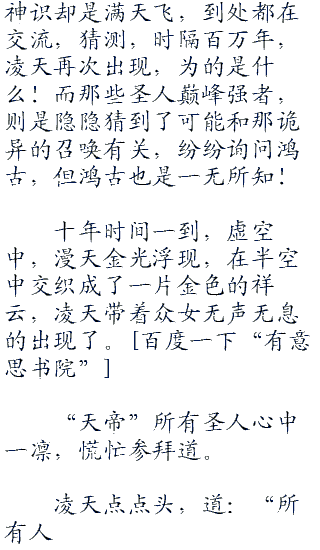 神识却是满天飞，到处都在
交流，猜测，时隔百万年，
凌天再次出现，为的是什
么！而那些圣人巅峰强者，
则是隐隐猜到了可能和那诡
异的召唤有关，纷纷询问鸿
古，但鸿古也是一无所知！
十年时间一到，虚空
中，漫天金光浮现，在半空
中交织成了一片金色的祥
云，凌天带着众女无声无息
的出现了。[百度一下“有意
思书院”]
“天帝”所有圣人心中
一凛，慌忙参拜道。
凌天点点头，道：“所
有人